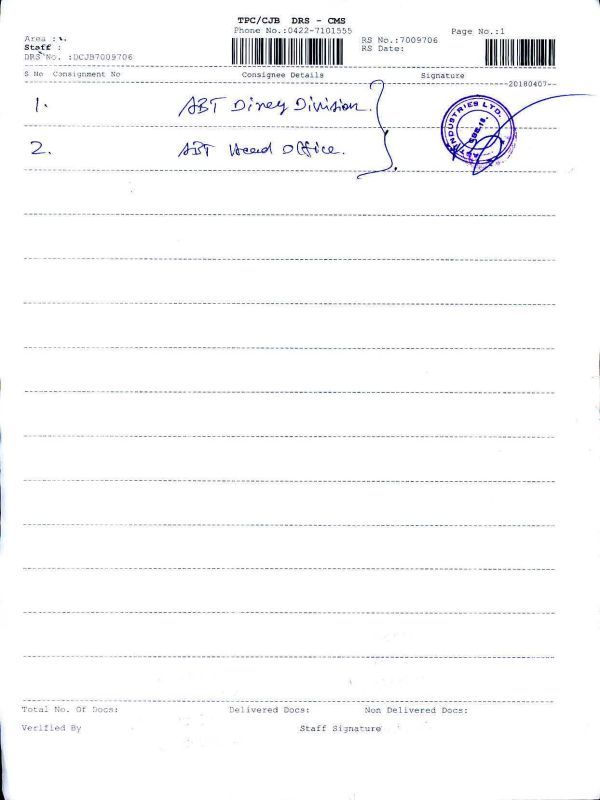 TPC/CJB DRS - CMS
Phone No.:0422-7101555
Page No.:1
Area :
Staff :
DRS No. :DCJB7009706
RS No.:7009706
RS Date:
S No Consignment No Consignee Details Signature
20180407
1. ABT Diney Division.
2. ABT Head Office.
INDUSTRIES LTD.
Total No. Of Docs: Delivered Docs: Non Delivered Docs:
Verified By Staff Signature